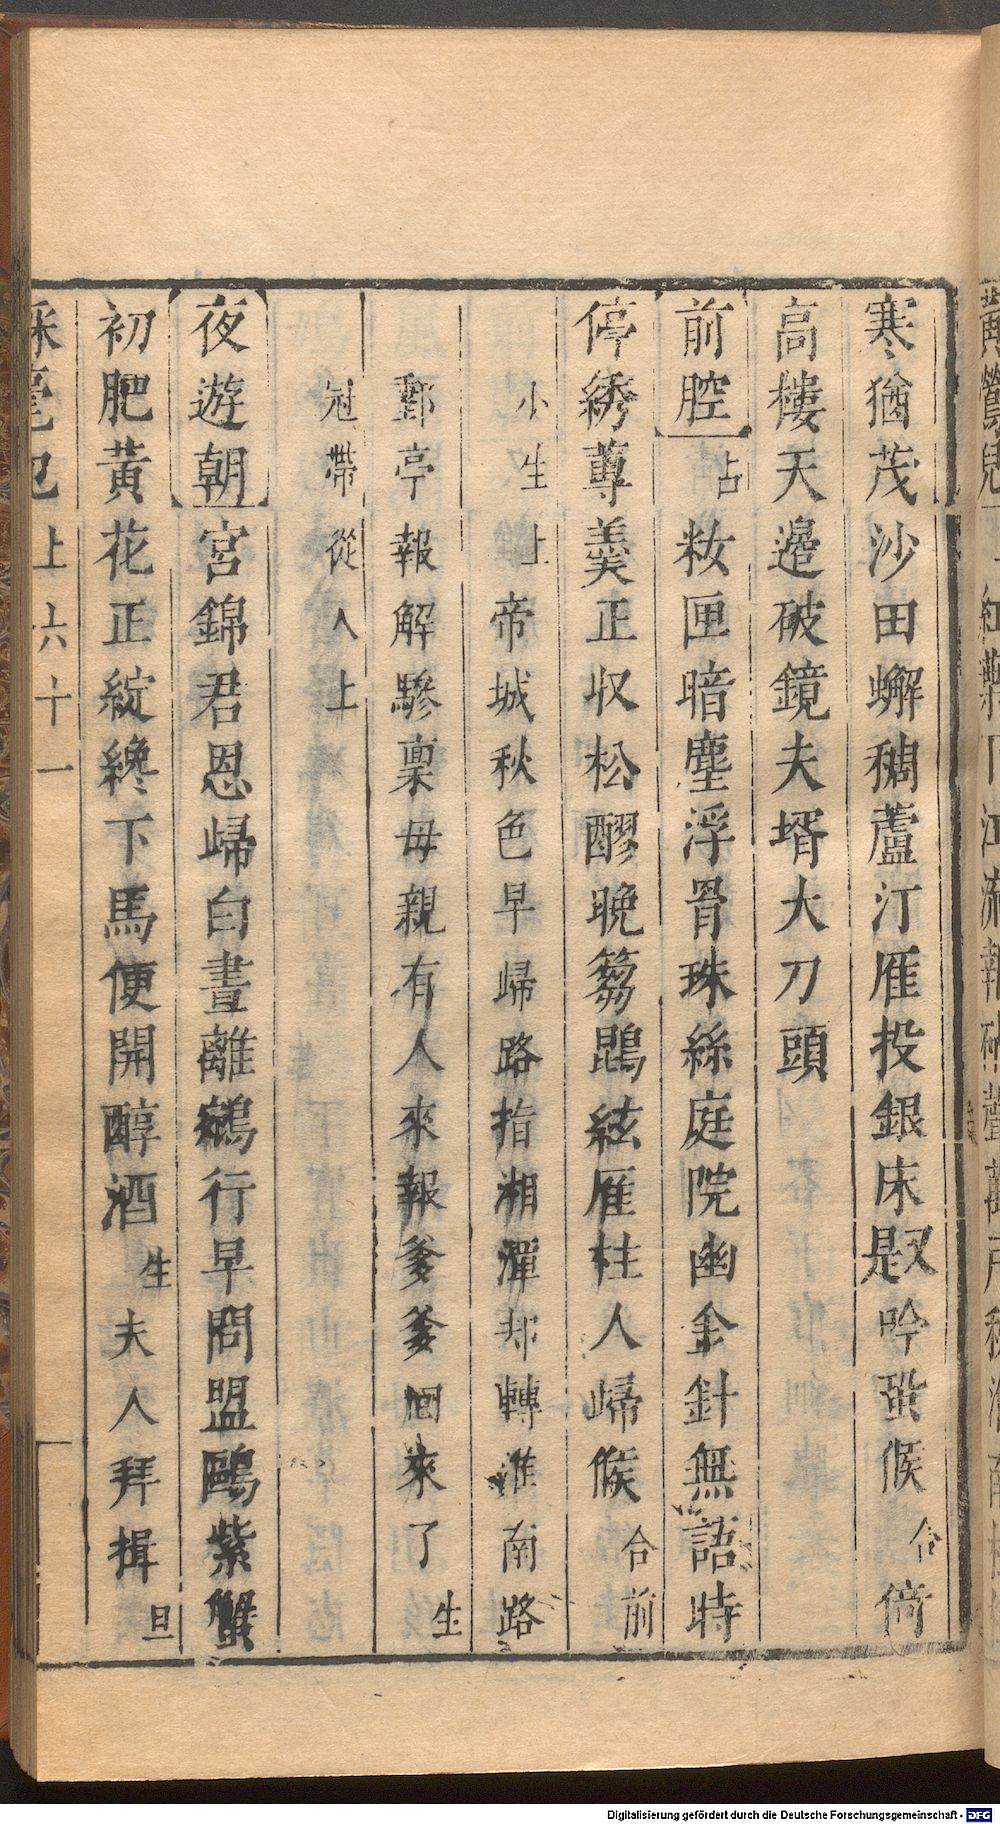 寒猶茂沙田蠏稠蘆汀雁投銀床是又吟蛩候合倚
高樓天邉破鏡夫壻大刀頭
前腔占籹匣暗塵浮罥珠絲庭院幽金針無語時
停綉蓴羹正収松醪晚芻鵾絃雁柱人歸候合前
小生上帝城秋色早歸路指湘潭却轉淮南路
郵亭報解驂禀毋親有人來報爹爹回來了生
冠帶從人上
夜遊朝宮錦君恩歸白晝離鵷行早問盟鷗紫蟹
初肥黃花正綻纔下馬便開醇酒生夫人拜揖旦
綵毫也上六十一
Digitalisierung gefördert durch die Deutsche Forschungsgemeinschaft - DFG